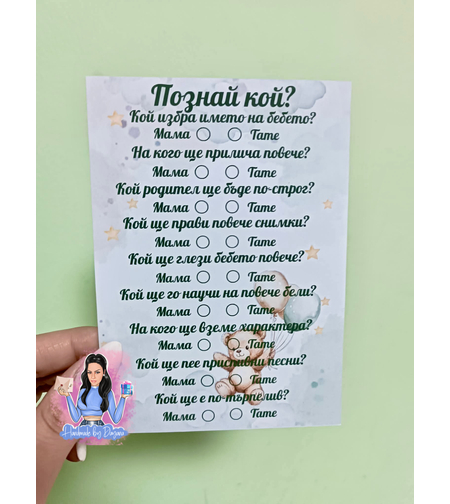 Познай кой?
Кой избра името на бебето?
Мама Тате
На кого ще прилича повече?
Мама Тате
Кой родител ще бъде по-строг?
Мама Тате
Кой ще прави повече снимки?
Мама Тате
Кой ще глези бебето повече?
Мама Тате
Кой ще го научи на повече бели?
Мама Тате
На кого ще вземе характера?
Мама Тате
Кой ще пее приспивни песни?
Мама Тате
Кой ще е по-търпелив?
Мама Тате
Handmade by